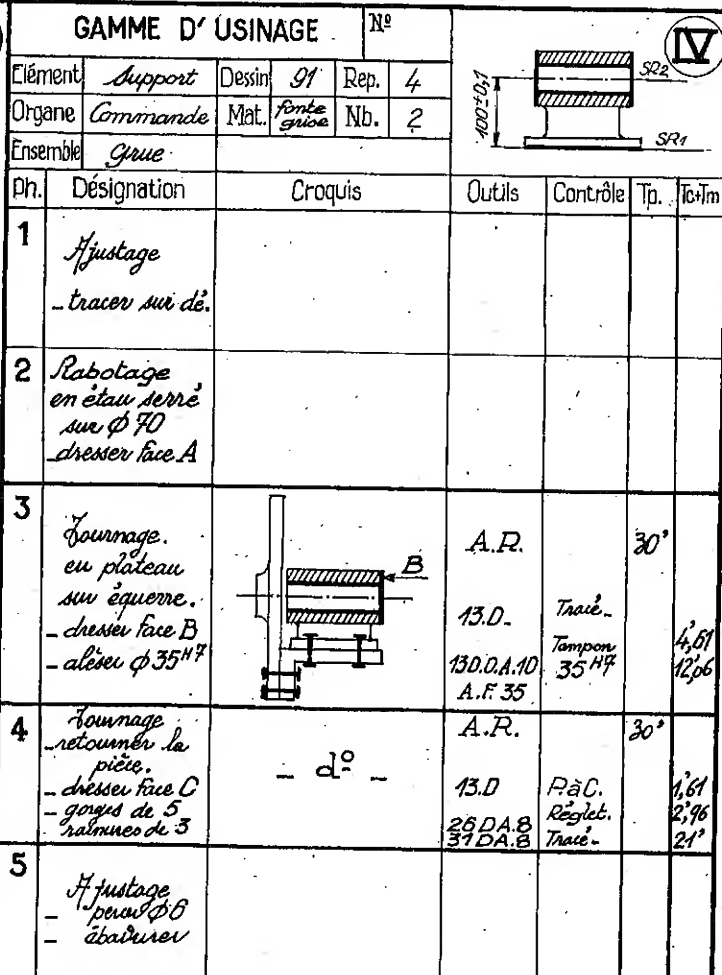 GAMME D'USINAGE Nº
IV
Elément Support Dessin 91 Rep. 4
Organe Commande Mat. fonte grise Nb. 2
Ensemble Grue
100±0,1
SR2
SR1
Ph. Désignation Croquis Outils Contrôle Tp. Tc+Tm
1
Ajustage
- tracer sur dé.
2 Rabotage
en étau serré
sur ϕ 70
- dresser face A
3
Tournage.
en plateau
sur équerre.
- dresser face B
- aléser ϕ 35H7
B
A.R.
13.D.
13D.O.A.10
A.F. 35
Tracé.
Tampon
35H7
30'
4,61
12,06
4
Tournage
- retourner la
pièce.
- dresser face C
- gorges de 5
rainures de 3
- dº -
A.R.
13.D
26DA.8
31DA.8
P.àC.
Réglet.
Tracé.
30'
1,61
2,96
21'
5
Ajustage
- percer ϕ6
- ébavurer